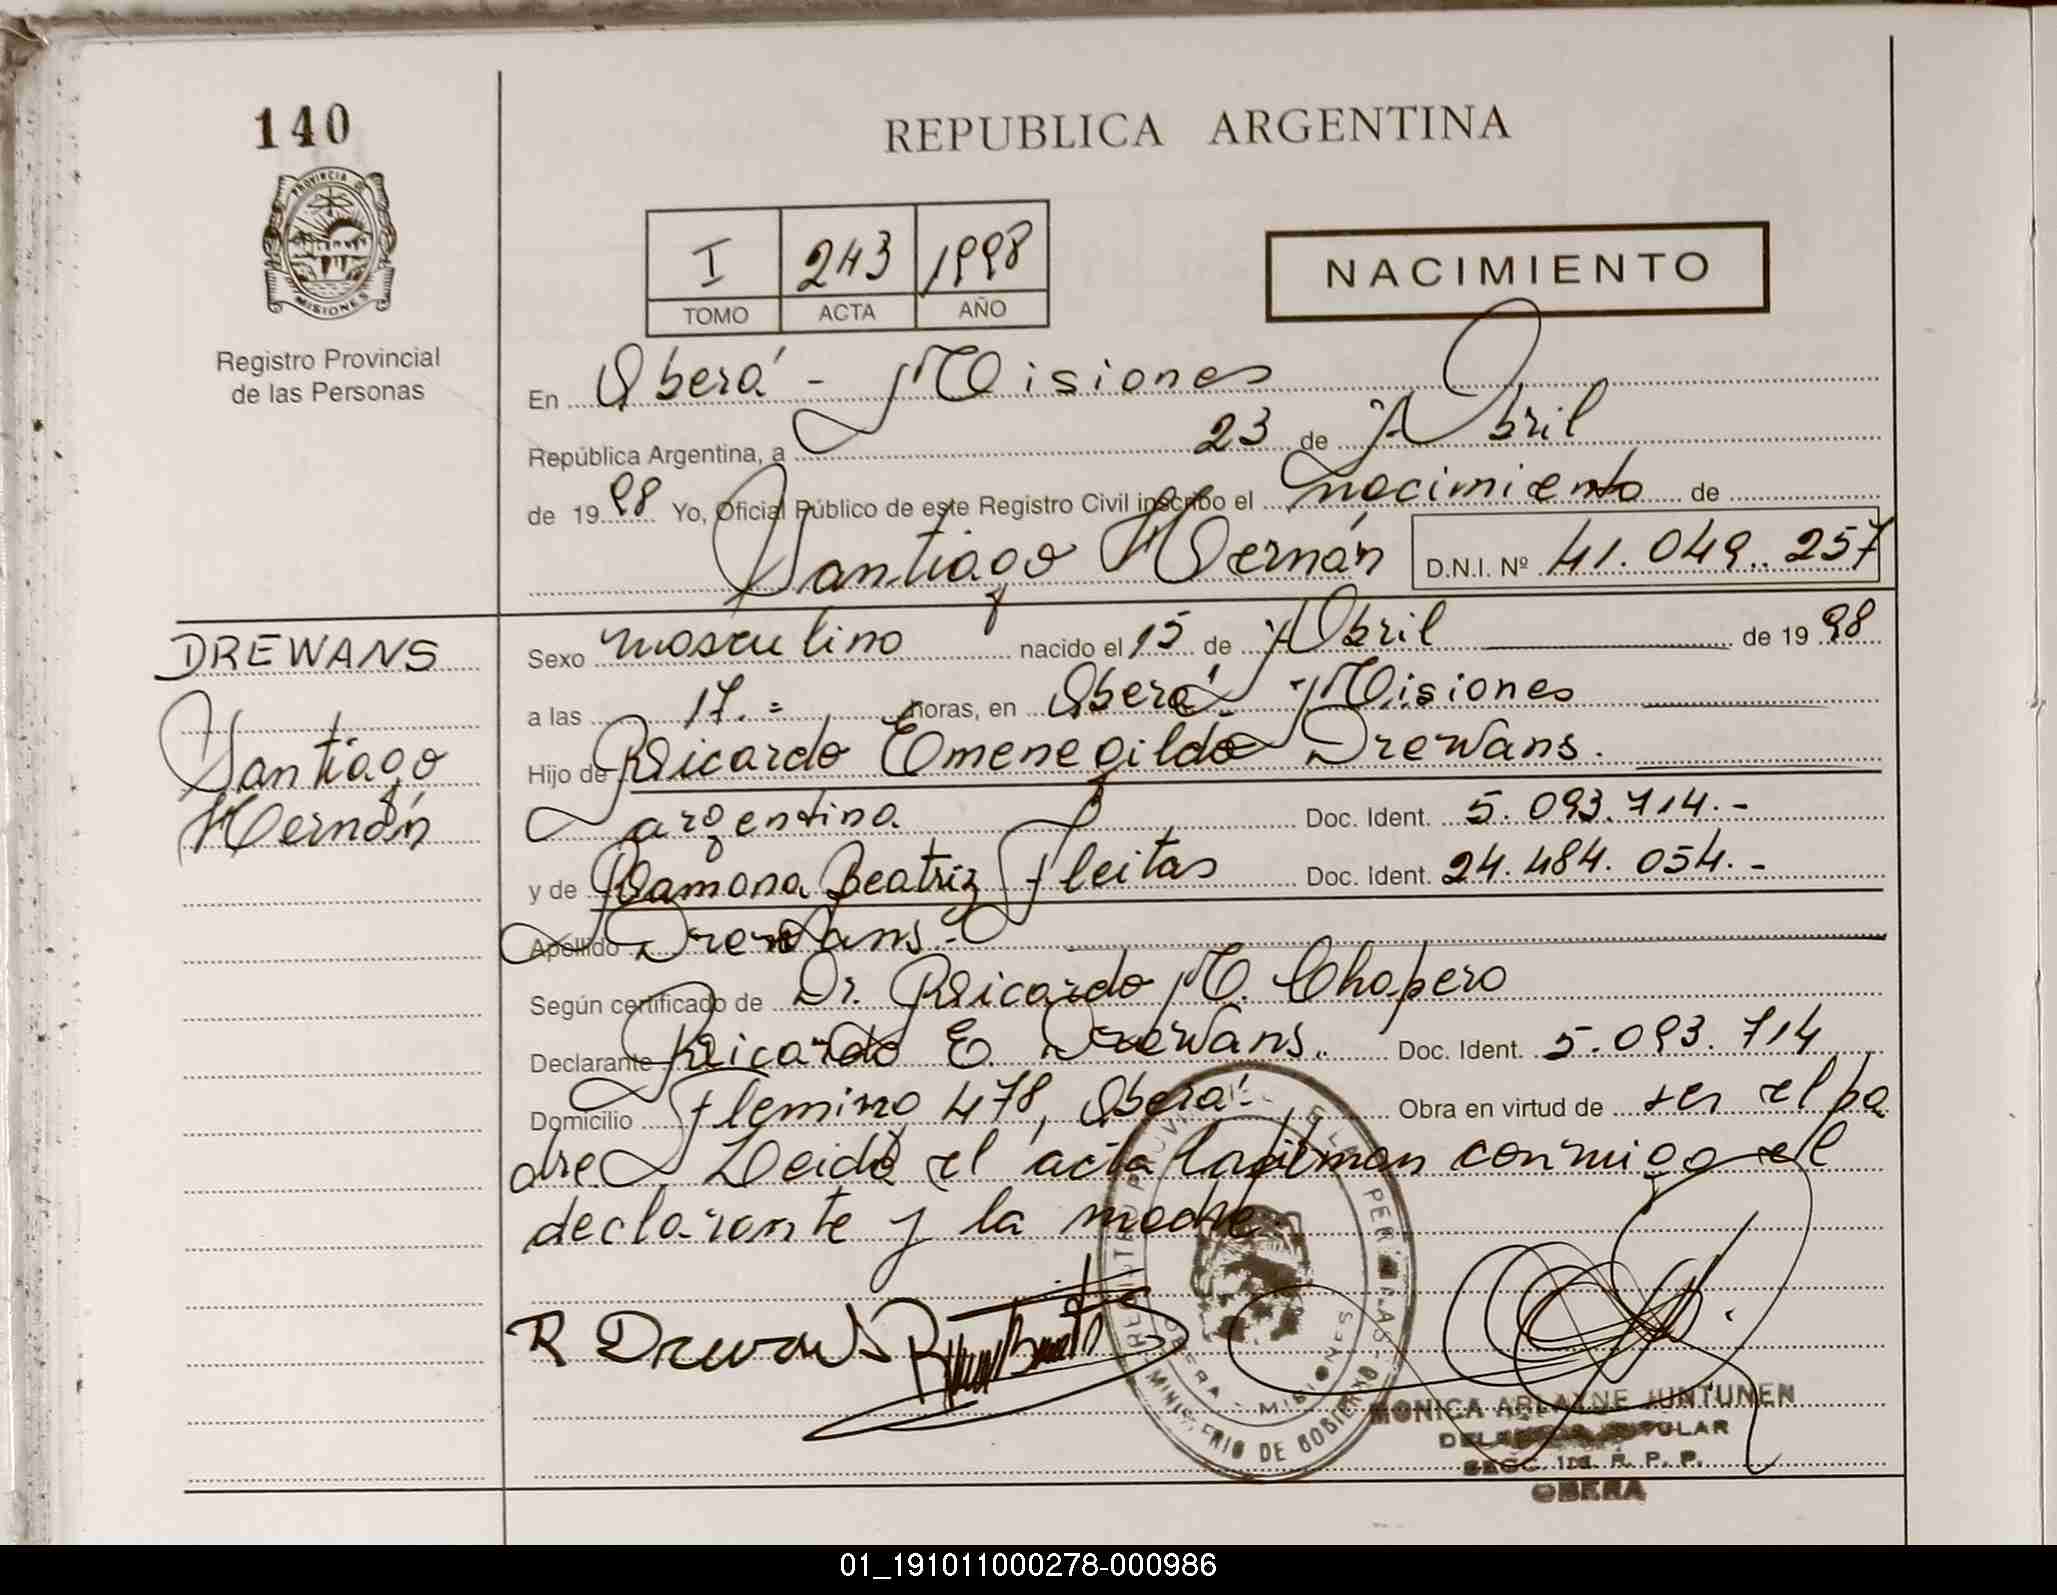 140
REPUBLICA ARGENTINA
PROVINCIA DE
MISIONES
Registro Provincial
de las Personas
I 243 1998
TOMO ACTA AÑO
NACIMIENTO
En Oberá - Misiones
República Argentina, a 23 de Abril
de 1998 Yo, Oficial Público de este Registro Civil inscribo el nacimiento de
Santiago Hernán D.N.I. Nº 41.049.257
DREWANS
Santiago
Hernán
Sexo masculino nacido el 15 de Abril de 1998
a las 17.= horas, en Oberá - Misiones
Hijo de Ricardo Emenegildo Drewans.
argentina Doc. Ident. 5.093.714.-
y de Ramona Beatriz Fleitas Doc. Ident. 24.484.054.-
Apellido Drewans.-
Según certificado de Dr. Ricardo M. Chapero
Declarante Ricardo E. Drewans. Doc. Ident. 5.093.714
Domicilio Fleming 478, Oberá. Obra en virtud de ser el pa
dre. Leida el acta la firman conmigo el
declarante y la madre.
R Drewans
MINISTERIO DE GOBIERNO
OBERA - MISIONES
MONICA ARLAYNE JUNTUNEN
TITULAR
R. P. P.
OBERA
01_191011000278-000986